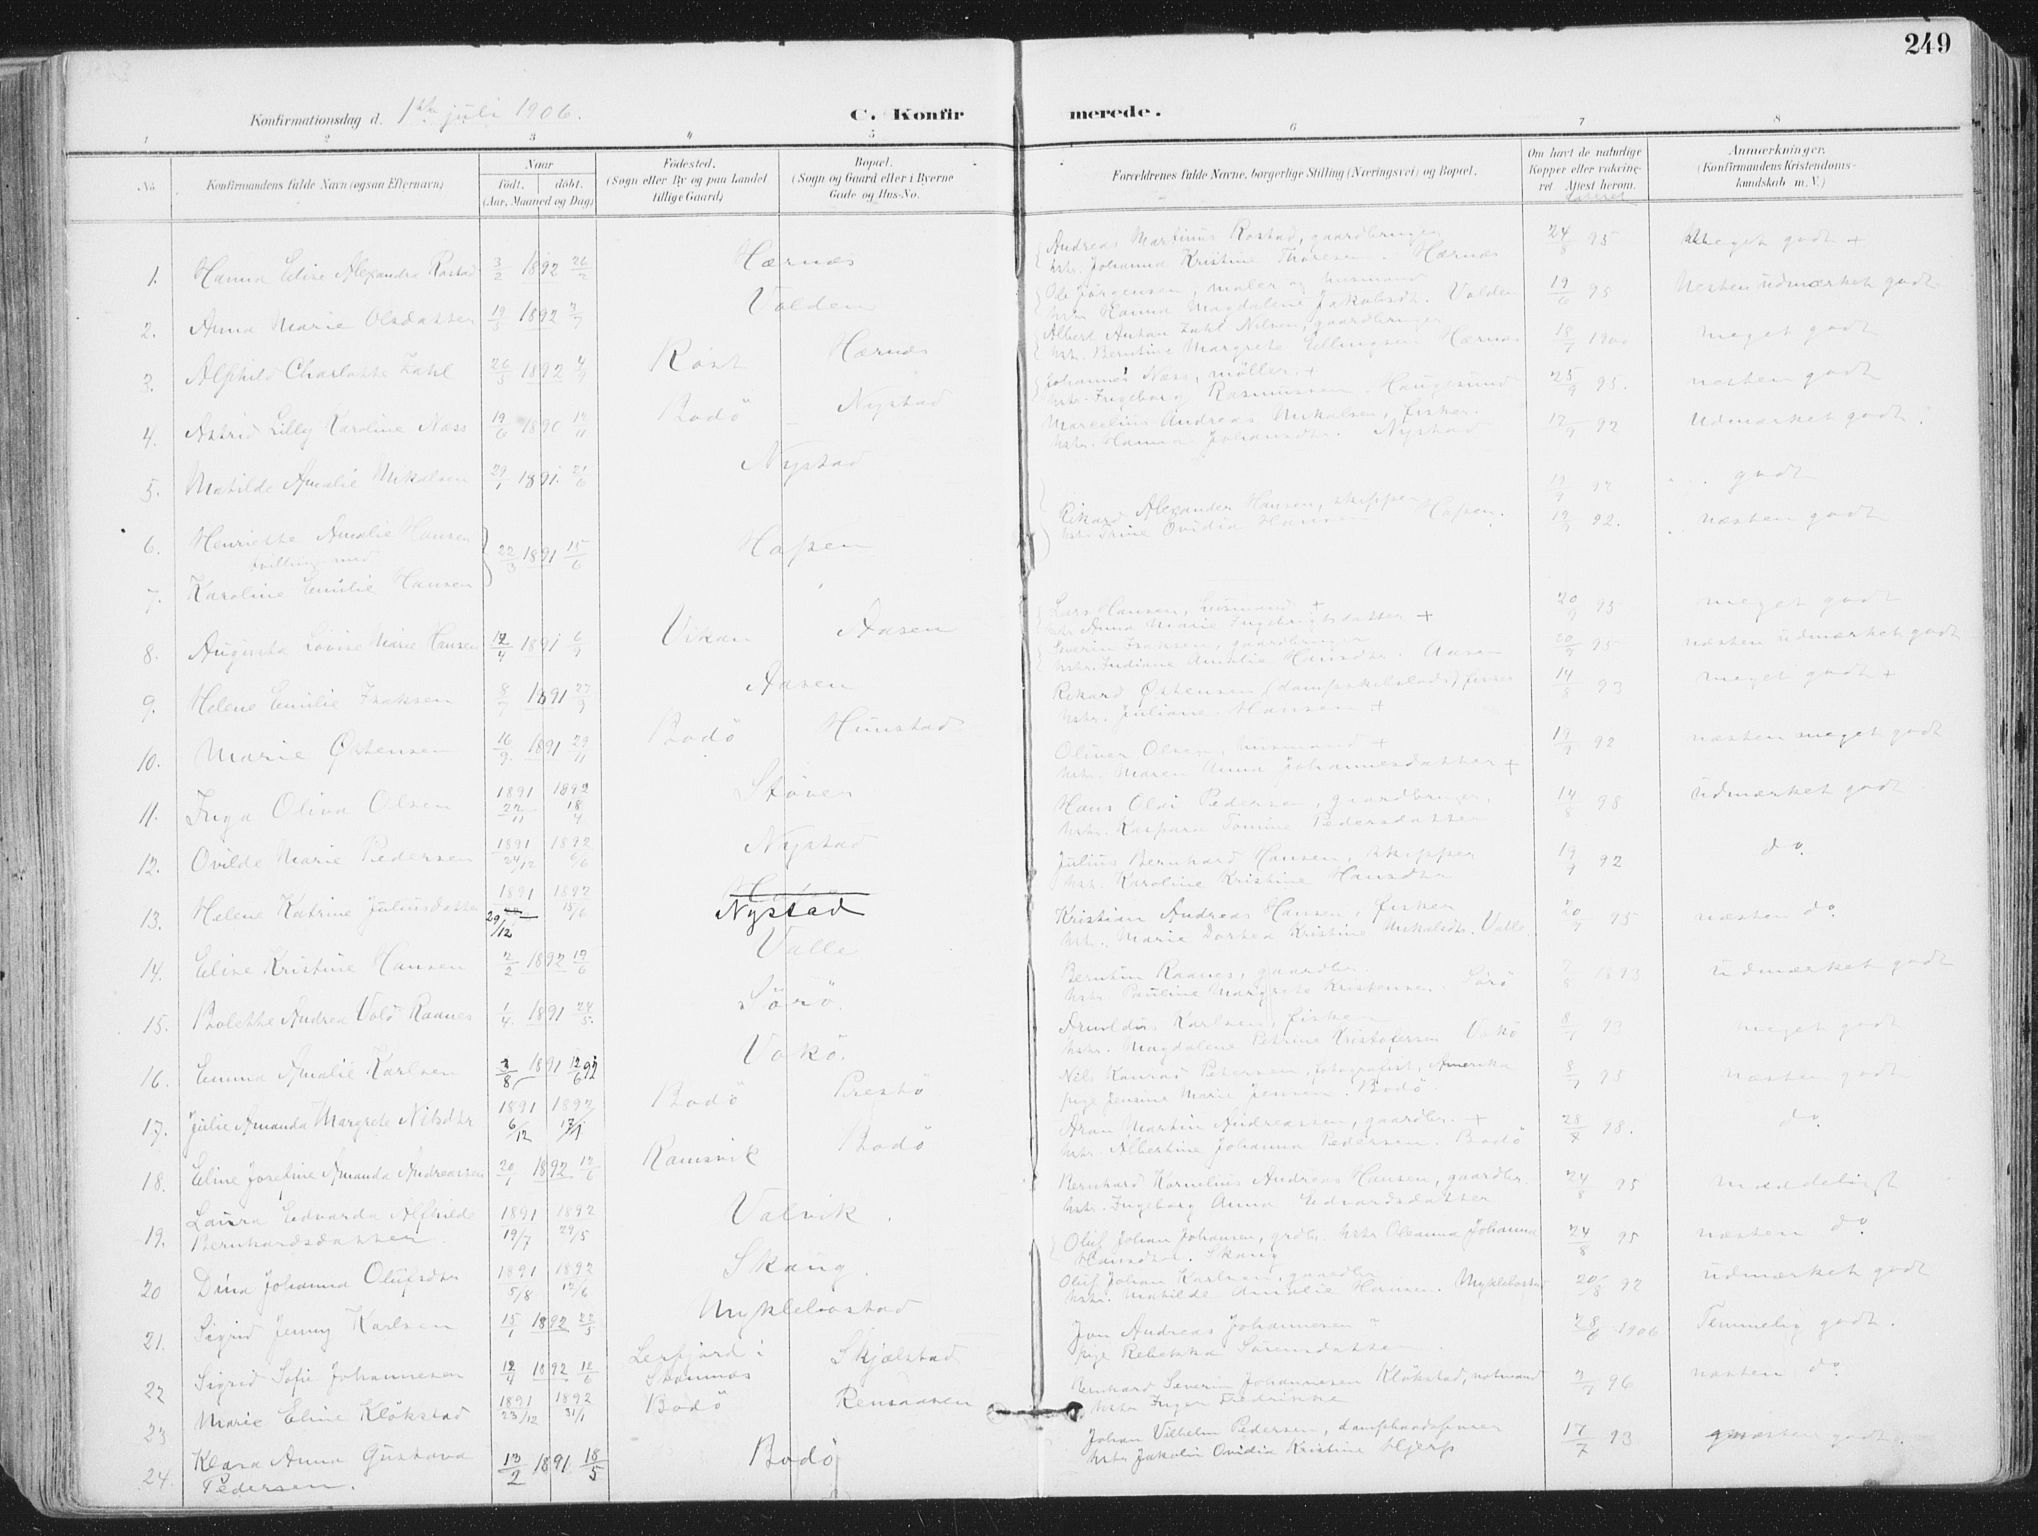 249
Konfirmationsdag d. 1ste juli 1906.
C. Konfirmerede.
1 2 3 4 5 6 7 8
No.
Konfirmandens fulde Navn (ogsaa Efternavn)
Naar
født. døbt.
(Aar, Maaned og Dag)
Fødested.
(Sogn eller By og paa Landet
tillige Gaard)
Bopæl.
(Sogn og Gaard eller i Byerne
Gade og Hus-No.
Forældrenes fulde Navne, borgerlige Stilling (Næringsvei) og Bopæl.
Om havt de naturlige
Kopper eller vakcine-
ret. Attest herom.
Anmærkninger.
(Konfirmandens Kristendoms-
kundskab m. V.)
1. Hanna Elise Alexandra Rostad 3/2 1892 26/2 Hernes
Andreas Martinus Rostad, gaardbruger
hstr. Johanna Kristine Thoresen. Hernes 24/8 95 Meget godt +
2. Anna Marie Olsdatter 19/5 1892 3/7 Valden
Ole Jørgensen, maler og husmand
hstr. Hanna Magdalene Jakobsdtr. Valden 19/6 95 Nesten udmærket godt
3. Alfhild Charlotte Zahl 26/5 1892 4/9 Røst Hernes
Albert Anton Zahl Nilsen, gaardbruger
hstr. Berntine Margrete Ellingsen Hernes 18/7 1900 meget godt
4. Astrid Lilly Karoline Næss 19/6 1890 Bodö Nystad
Johannes Næss, møller +
hstr. Ingeborg Rasmussen. Haugesund 25/9 95. næsten godt
5. Matilde Amalie Mikalsen 29/1 1891 21/6 Nystad
Marcelius Andreas Mikalsen, fisker.
hstr. Hanna Johansdtr. Nystad 12/9 92 Udmærket godt
6. Henriette Amalie Hansen
tvilling med
22/3 1891 15/6 Hopen
Rikard Alexander Hansen, skipper
hstr. Trine Ovidia Hansen Hopen. 19/9 92 godt
7. Karoline Emilie Hansen 19/9 92. næsten godt
8. Augusta Lovise Marie Hansen 12/4 1891 6/9 Vikan Aasen
Lars Hansen, husmand +
hstr. Anna Marie Ingebrigtsdatter + 20/9 95 meget godt
9. Helene Emilie Isaksen 8/7 1891 27/9 Aasen
Severin Isaksen, gaardbruger
hstr. Indiane Amalie Hansdtr. Aasen 20/9 95 næsten udmærket godt
10. Marie Østensen 16/9 1891 29/11 Bodö Hunstad
Rikard Østensen (dampskibslods) fisker
hstr. Juliane Hansen + 14/8 93 meget godt +
11. Inga Oliva Olsen 1891 22/11 1892 18/4 Støver
Oliver Olsen, husmand +
hstr. Maren Anna Johannesdatter + 19/9 92 næsten meget godt
12. Ovilde Marie Pedersen 1891 24/12 1892 6/6 Nystad
Hans Oldi Pedersen, gaardbruger,
hstr. Kaspara Tomine Pedersdatter 14/8 98 udmærket godt
13. Helene Katrine Juliusdatter 1891 29/12 1892 15/6 Nystad
Julius Bernhard Hansen, skipper
hstr. Karoline Kristine Hansdtr 19/9 92 do.
14. Elise Kristine Hansen 2/2 1892 19/6 Valle
Kristian Andreas Hansen, fisker
hstr. Marie Dorthea Kristine Mikalsdtr. Valle. 20/9 95 næsten do.
15. Bolette Andrea Vold Raanes 1/4. 1891 24/5. Sörö.
Berntin Raanes, gaardbr.
hstr. Pauline Margrete Kristensen. Sörö 7/8 1893 Udmærket godt
16. Emma Amalie Karlsen 3/8 1891 12/6 92 Vokö.
Arnoldus Karlsen, fisker
hstr. Magdalene Petrine Kristofersen Vokö 8/7 93 meget godt
17. Julie Amanda Margrete Nilsdtr 1891 6/12 1892 17/1 Bodö Prestö
Nils Konrad Petersen, fotografist, Amerika
pige Jensine Marie Jensen. Bodö. 8/9 95 næsten godt
18. Eline Josefine Amanda Andreassen 20/1 1892 12/6 Ramsvik Bodö
Aron Martin Andreassen, gaardbr. +
hstr. Albertine Johanna Pedersen. Bodö 28/7 98. do.
19. Laura Edvarda Alfhilde
Bernhardsdatter. 1891 19/7 1892 29/5 Valvik.
Bernhard Kornelius Andreas Hansen, gaardbr.
hstr. Ingeborg Anna Edvardsdatter 24/8 95 maadeligt
20 Dina Johanna Olufsdtr 1891 5/8 1892 12/6 Skaug.
Oluf Johan Johansen, grdbr. hstr Oleanna Johanna
Hansdtr. Skaug 24/8 95 næsten do.
21. Sigrid Jenny Karlsen 15/1 1892 22/5 Myklebostad
Oluf Johan Karlsen, gaardbr.
hstr. Matilde Amalie Hansen. Myklebostad 20/8 92 udmærket godt
22 Sigrid Sofie Johannesen 12/4 1892 12/6 Leifjord i
Stamnes Skjelstad
Jon Andreas Johannesen
pige Rebekka Sørensdatter 28/6 1906. Temmelig godt.
23 Marie Eline Kløkstad 1891 23/12 1892 31/1 Bodö Rensaasen
Bernhard Severin Johannesen Kløkstad, notmand
hstr Inger Fredrikke 2/7 96 næsten do.
24. Klara Anna Gustava
Pedersen. 13/2 1891 18/5 Bodö
Johan Vilhelm Pedersen, dampbaadsfører
hstr Jakobin Ovidia Kristine Hjerp 17/7 93 næsten godt.